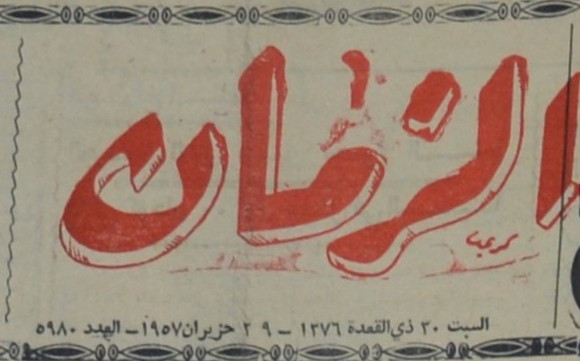 الزمان
السبت ٣٠ ذي القعدة ١٣٧٦ – ٢٩ حزيران ١٩٥٧ – العدد ٥٩٨٠